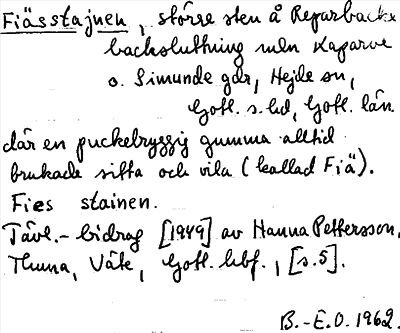 Fiässtajnen, större sten å Reparbacke
backsluttning mln Kaparve
o. Simunde gdr, Hejde sn,
Gotl. s. hd, Gotl. län
där en puckelryggig gumma alltid
brukade sitta och vila (kallad Fiä).
Fies stainen.
Tävl.-bidrag [1949] av Hanna Pettersson,
Thuna, Väte, Gotl. hbf., [s.5].
B.-E.O. 1962.